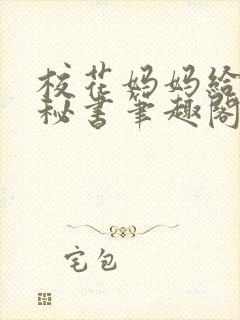 校花妈妈给
秘书笔趣阁
宅包